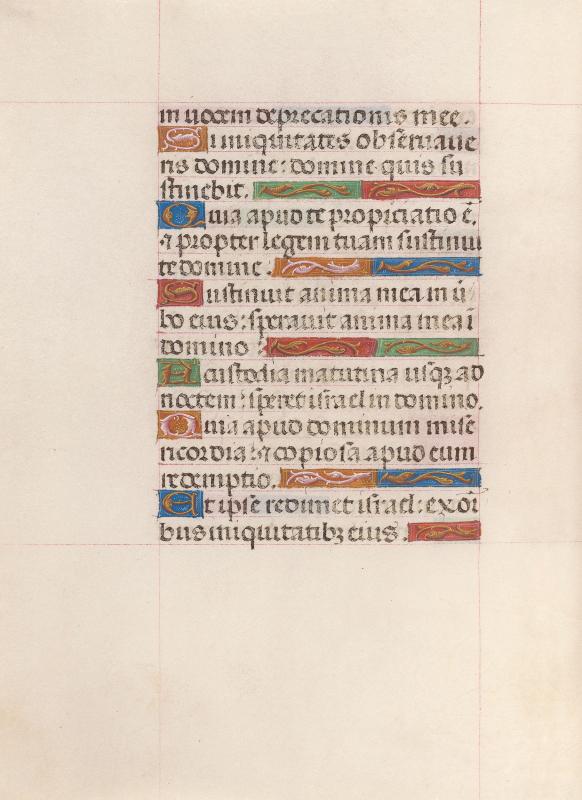 in vocem deprecationis mee.
Si iniquitates obseruaue
ris domine: domine quis su
stinebit.
Quia apud te propiciatio ē.
⁊ propter legem tuam sustinui
te domine.
Sustinuit anima mea in ū
bo eius: sperauit anima mea ī
domino:
A custodia matutina usqꝫ ad
noctem: speret israel in domino.
Quia apud dominum mise
ricordia: ⁊ copiosa apud eum
redemptio.
Et ipse redimet israel: ex oī
bus iniquitatibꝫ eius.